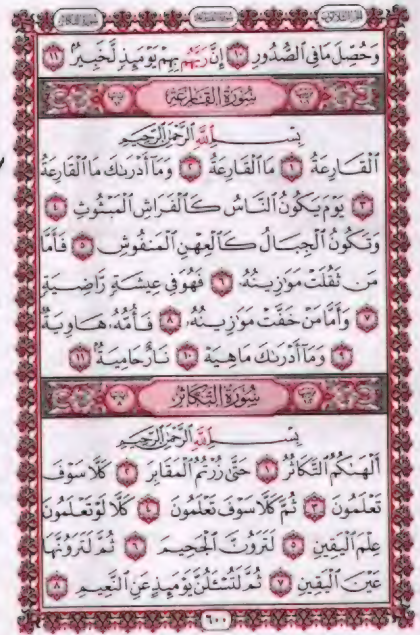 وَحُصِّلَ مَا فِي الصُّدُورِ ١٠ إِنَّ رَبَّهُم بِهِمْ يَوْمَئِذٍ لَّخَبِيرٌ ١١
سُورَةُ الْقَارِعَةِ
بِسْمِ اللَّهِ الرَّحْمَٰنِ الرَّحِيمِ
الْقَارِعَةُ ١ مَا الْقَارِعَةُ ٢ وَمَا أَدْرَىٰكَ مَا الْقَارِعَةُ
٣ يَوْمَ يَكُونُ النَّاسُ كَالْفَرَاشِ الْمَبْثُوثِ ٤
وَتَكُونُ الْجِبَالُ كَالْعِهْنِ الْمَنفُوشِ ٥ فَأَمَّا
مَن ثَقُلَتْ مَوَٰزِينُهُ ٦ فَهُوَ فِي عِيشَةٍ رَّاضِيَةٍ
٧ وَأَمَّا مَنْ خَفَّتْ مَوَٰزِينُهُ ٨ فَأُمُّهُ هَاوِيَةٌ
٩ وَمَا أَدْرَىٰكَ مَا هِيَهْ ١٠ نَارٌ حَامِيَةٌ ١١
سُورَةُ التَّكَاثُرِ
بِسْمِ اللَّهِ الرَّحْمَٰنِ الرَّحِيمِ
أَلْهَىٰكُمُ التَّكَاثُرُ ١ حَتَّىٰ زُرْتُمُ الْمَقَابِرَ ٢ كَلَّا سَوْفَ
تَعْلَمُونَ ٣ ثُمَّ كَلَّا سَوْفَ تَعْلَمُونَ ٤ كَلَّا لَوْ تَعْلَمُونَ
عِلْمَ الْيَقِينِ ٥ لَتَرَوُنَّ الْجَحِيمَ ٦ ثُمَّ لَتَرَوُنَّهَا
عَيْنَ الْيَقِينِ ٧ ثُمَّ لَتُسْـَٔلُنَّ يَوْمَئِذٍ عَنِ النَّعِيمِ ٨
٦٠٠